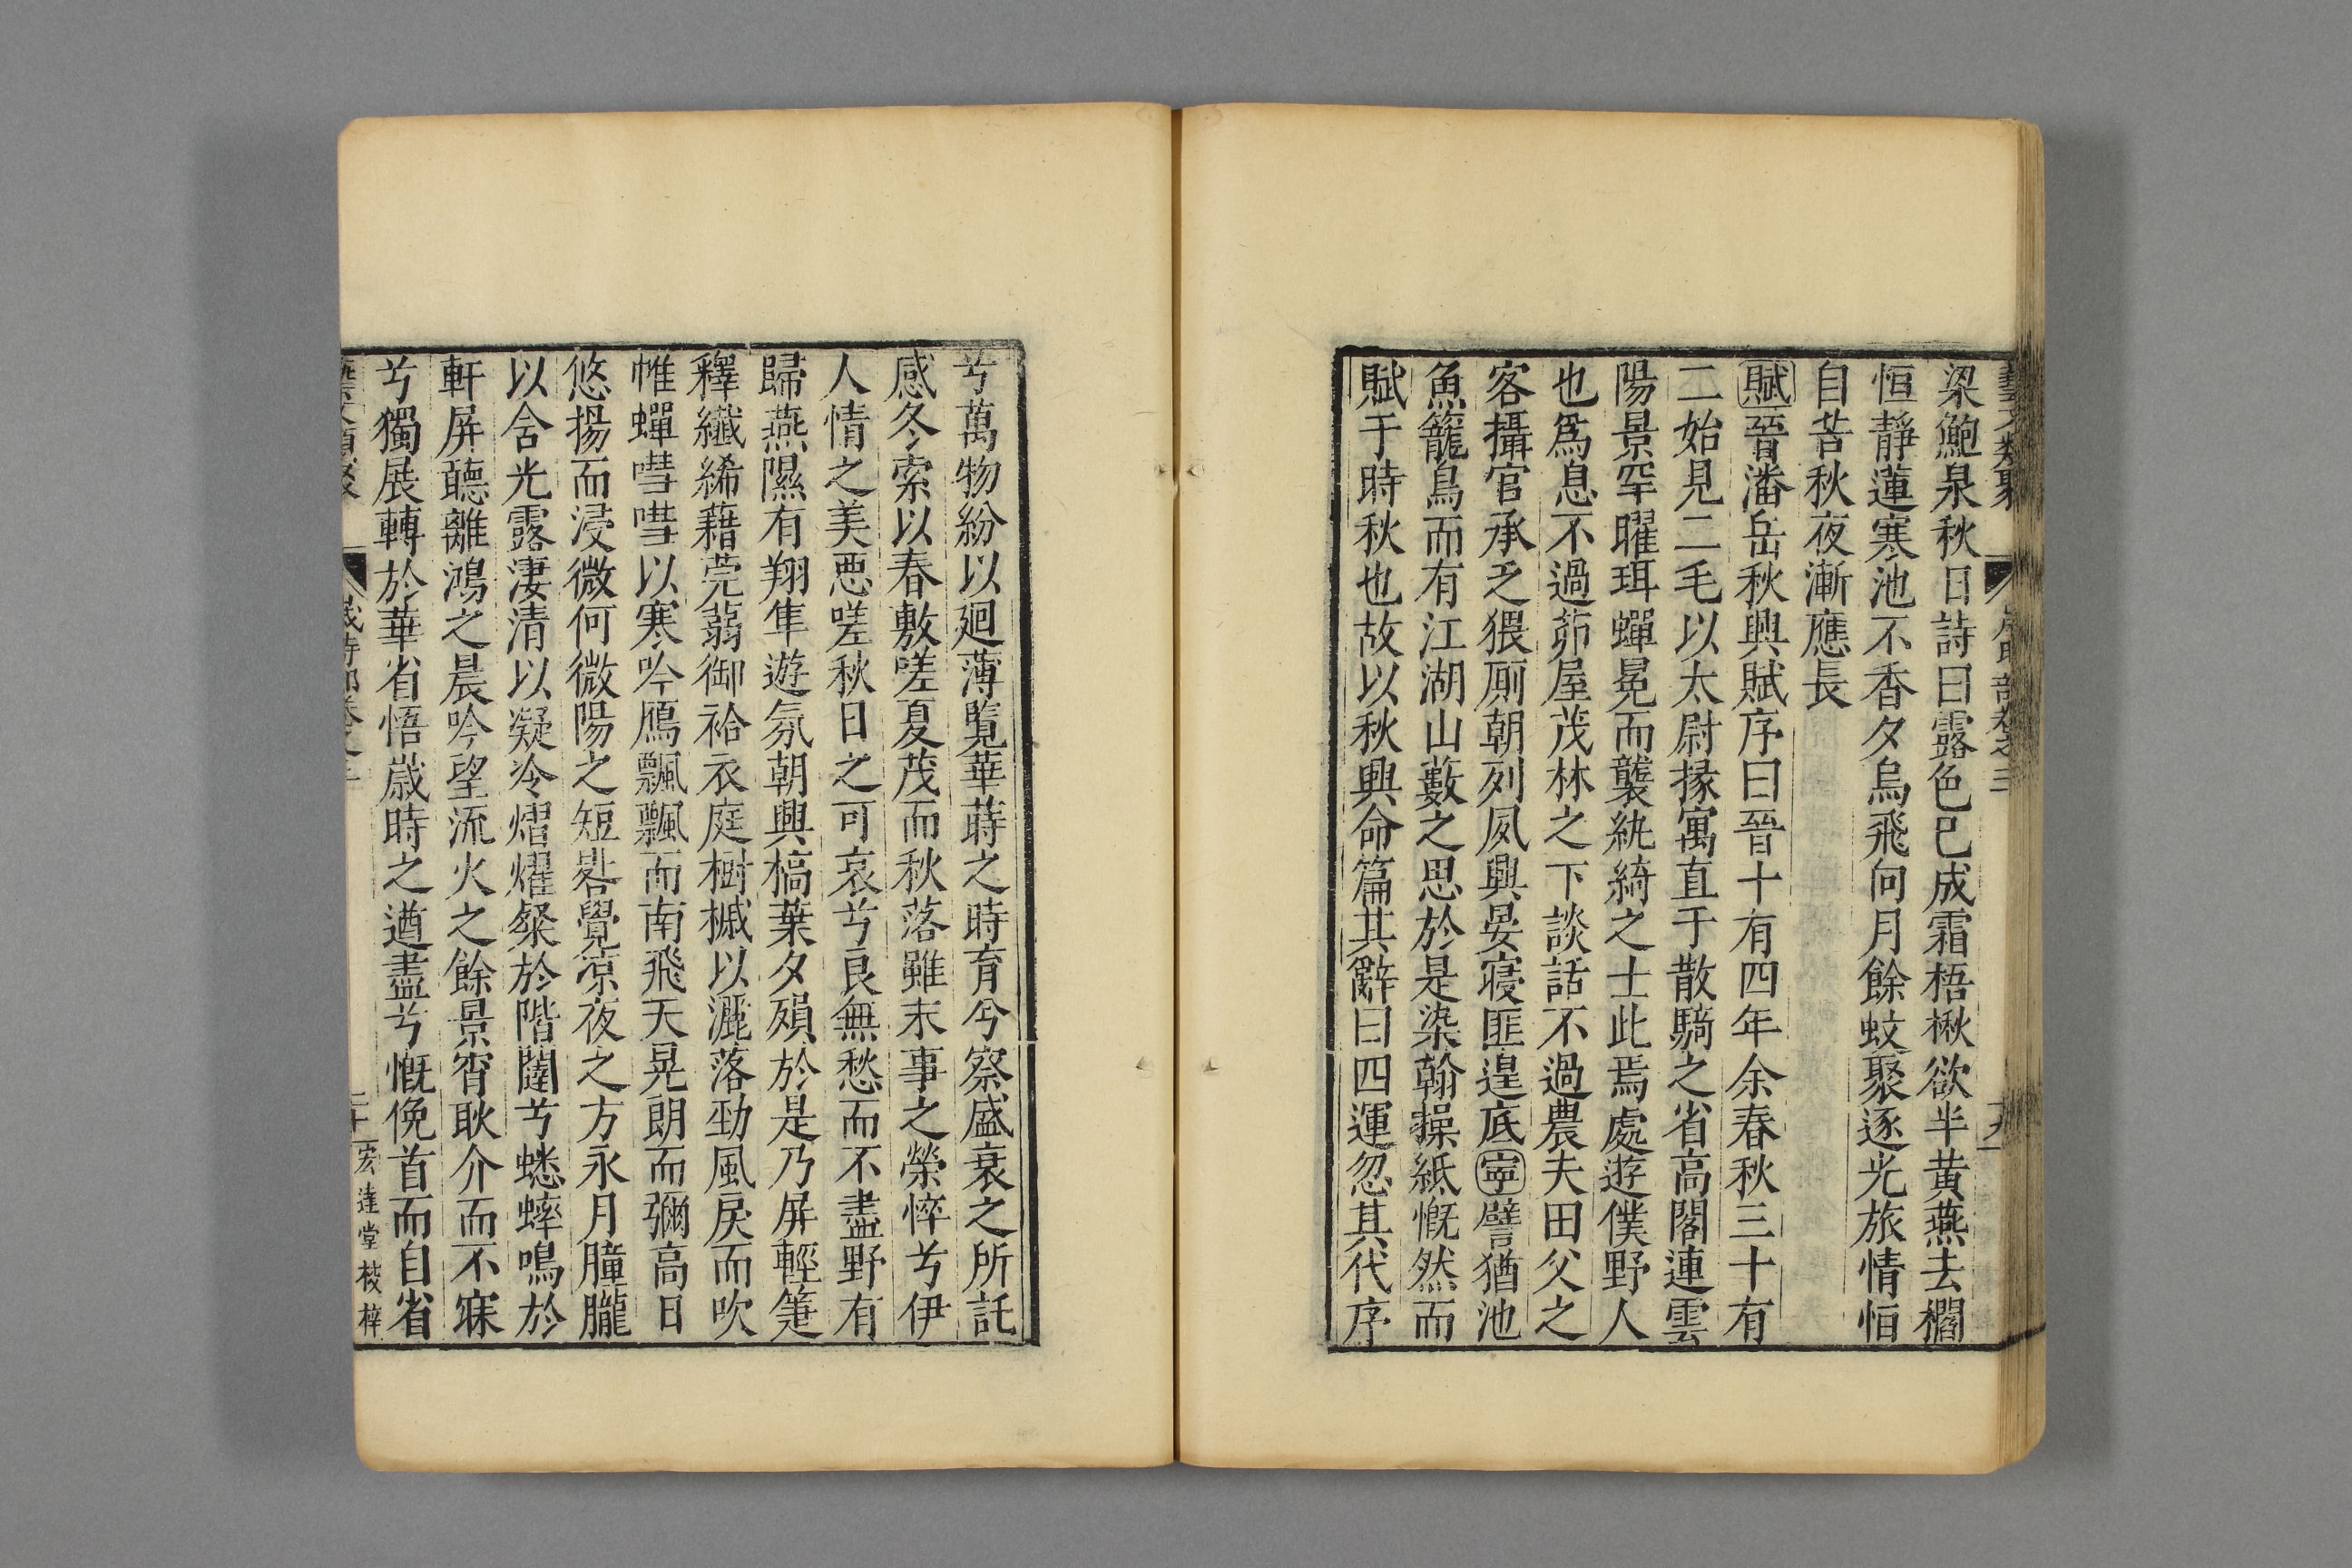 藝文類聚 歲時部卷之三 十九
梁鮑泉秋日詩曰露色已成霜梧楸欲半黄燕去櫩
恒靜蓮寒池不香夕烏飛向月餘蚊聚逐光旅情恒
自苦秋夜漸應長
賦晉潘岳秋興賦序曰晉十有四年余春秋三十有
二始見二毛以太尉掾寓直于散騎之省高閣連雲
陽景罕曜珥蟬冕而襲紈綺之士此焉處遊僕野人
也爲息不過茆屋茂林之下談話不過農夫田父之
客攝官承乏猥厠朝列夙興晏寢匪遑底寧譬猶池
魚籠鳥而有江湖山藪之思於是染翰操紙慨然而
賦于時秋也故以秋興命篇其辭曰四運忽其代序
兮萬物紛以廻薄覽華蒔之時育兮察盛衰之所託
感冬索以春敷嗟夏茂而秋落雖末事之榮悴兮伊
人情之美惡嗟秋日之可哀兮良無愁而不盡野有
歸燕隰有翔隼遊氛朝興槁葉夕殞於是乃屏輕箑
釋纖絺藉莞蒻御袷衣庭樹槭以灑落勁風戾而吹
帷蟬嘒嘒以寒吟鴈飄飄而南飛天晃朗而彌高日
悠揚而浸微何微陽之短晷覺凉夜之方永月朣朧
以含光露淒清以凝冷熠燿粲於階闥兮蟋蟀鳴於
軒屏聽離鴻之晨吟望流火之餘景宵耿介而不寐
兮獨展轉於華省悟歲時之遒盡兮慨俛首而自省
藝文類聚 歲時部卷之三 二十 宏達堂校梓